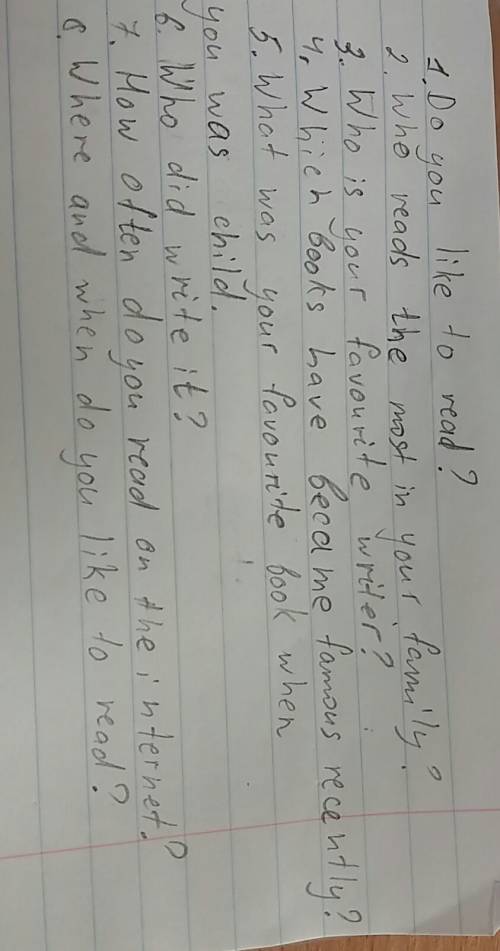 1. Do you like to read?
2. Who reads the most in your family?
3. Who is your favourite writer?
4. Which books have became famous recently?
5. What was your favourite book when
you was child.
6. Who did write it?
7. How often do you read on the internet?
8. Where and when do you like to read?